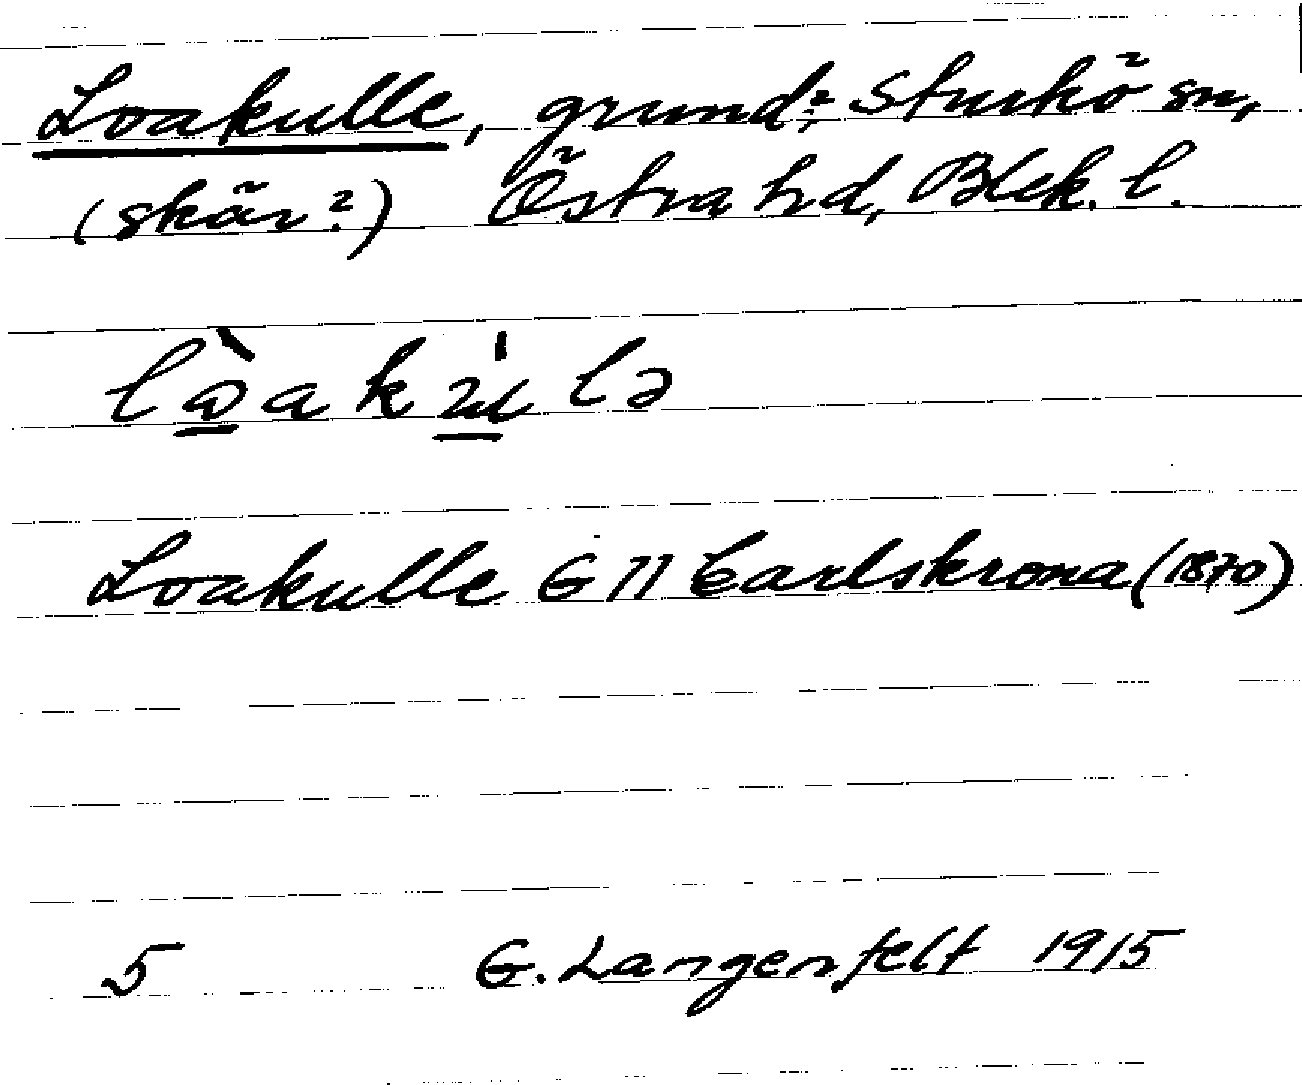 Loakulle, grund; Sturkö sn,
(skär?) Östra hd, Blek. l.
Loakulle G II Carlskrona (1870)
5 G. Langenfelt 1915